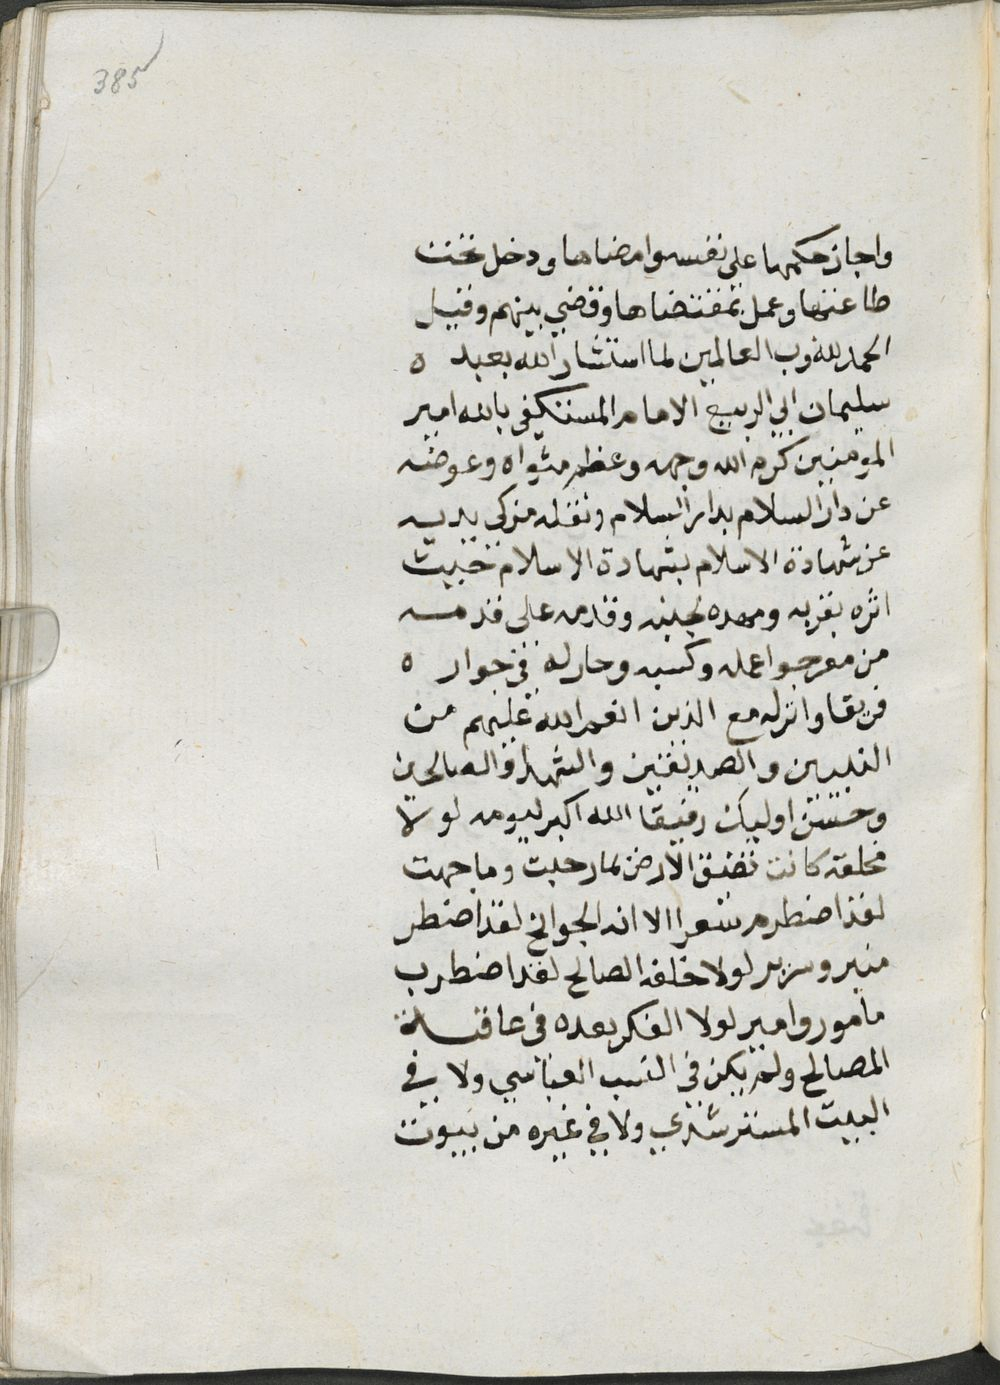 385
واجاز حكمها على نفسه وامضاها ودخل تحت
طاعتها وعمل بمقتضاها وقضي بينهم وقيل
الحمد لله رب العالمين لما استشار الله بعبد ه
سليمان ابي الربيع الامام المستكفي بالله امير
المومنين كرم الله وجهه وعظم مثواه وعوضه
عن دار السلام بدار السلام ونقله مزكي يديه
عن شهادة الاسلام بشهادة الاسلام حيث
اثره بقربه ومهده لجنبه وقدمه على قدمه
من مرجو عمله وكسبه وحار له في جوار ه
فريقا وانزله مع الذين انعم الله عليهم من
النبيين والصديقين والشهداء والصالحين
وحسن اوليك رفيقا الله اكبر ليومه لولا
مخلفه كانت تضيق الارض بما رحبت وما جهت
لقد اضطرم سعرا الا انه الجوانح لقد اضطر
منبر وسرير لولا خلفه الصالح لقد اضطرب
مامور وامير لولا الفكر بعده في عاقبة
المصالح ولم يكن في النسب العباسي ولا في
البيت المسترشدي ولا في غيره من بيوت